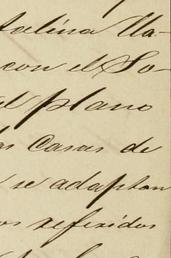 talina Ua-
con el So-
el plano
as Casas de
se adaptan
os referidos